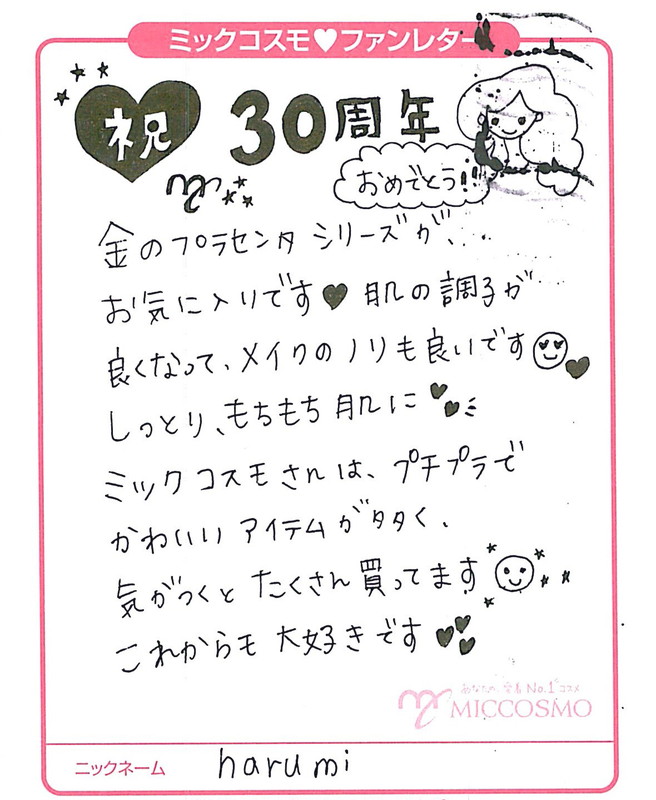 ミックコスモ♥ファンレター
祝 30周年
おめでとう!!
金のプラセンタ シリーズが、
お気に入りです♥ 肌の調子が
良くなって、メイクのノリも良いです
しっとり、もちもち 肌に
ミックコスモさんは、プチプラで
かわいい アイテムが多く、
気がつくと たくさん買ってます
これからも 大好きです
No.1コスメ
MICCOSMO
ニックネーム harumi